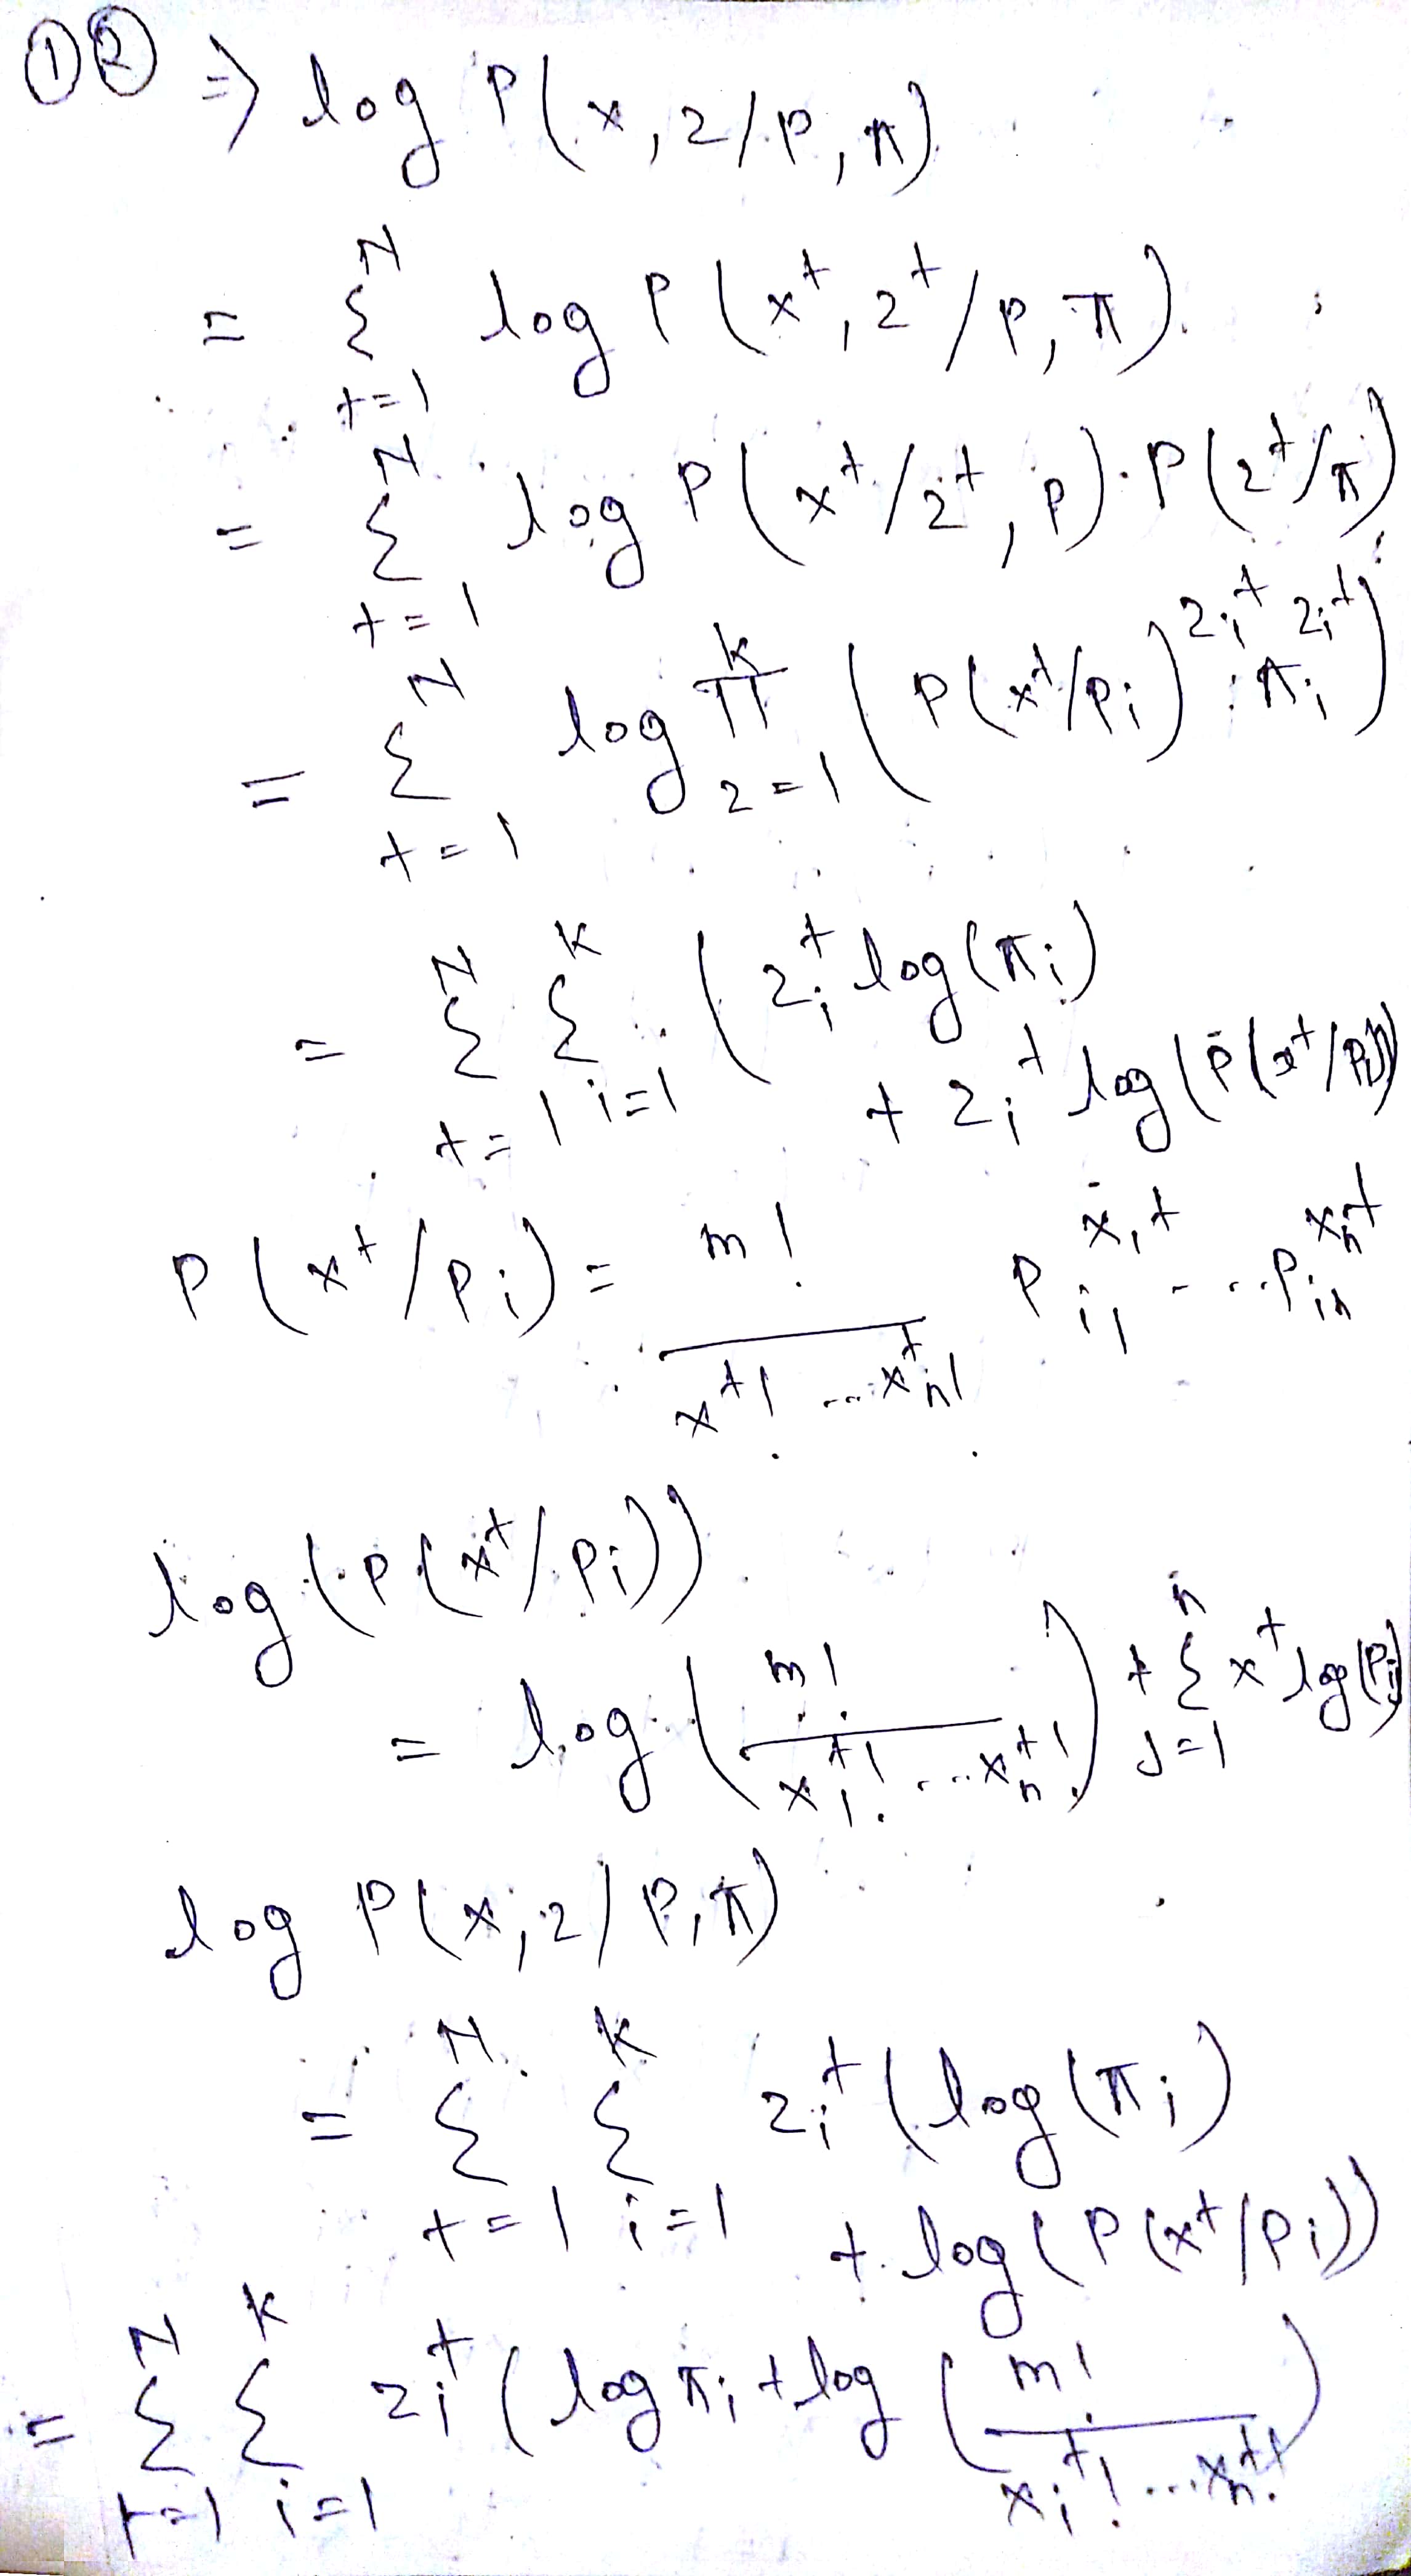 ① ② ⇒ log P(x, z/P, π)
= Σ_{t=1}^{N} log P(x^t, z^t/P, π)
= Σ_{t=1}^{N} log P(x^t/z^t, P) · P(z^t/π)
= Σ_{t=1}^{N} log Π_{z=1}^{K} (P(x^t/P_i)^{z_i^t} · π_i^{z_i^t})
= Σ_{t=1}^{N} Σ_{i=1}^{K} (z_i^t log(π_i)
+ z_i^t log(P(x^t/P_i))
P(x^t/P_i) = m! / (x^t! ... x_n^t!) P_{i1}^{x_1^t} .... P_{in}^{x_n^t}
log(P(x^t/P_i))
= log(m! / (x_1^t! ... x_n^t!)) + Σ_{j=1}^{n} x^t log(P_i)
log P(x, z/P, π)
= Σ_{t=1}^{N} Σ_{i=1}^{K} z_i^t (log(π_i)
+ log(P(x^t/P_i))
= Σ_{t=1}^{N} Σ_{i=1}^{K} z_i^t (log π_i + log (m! / (x_i^t! ... x_n^t!))